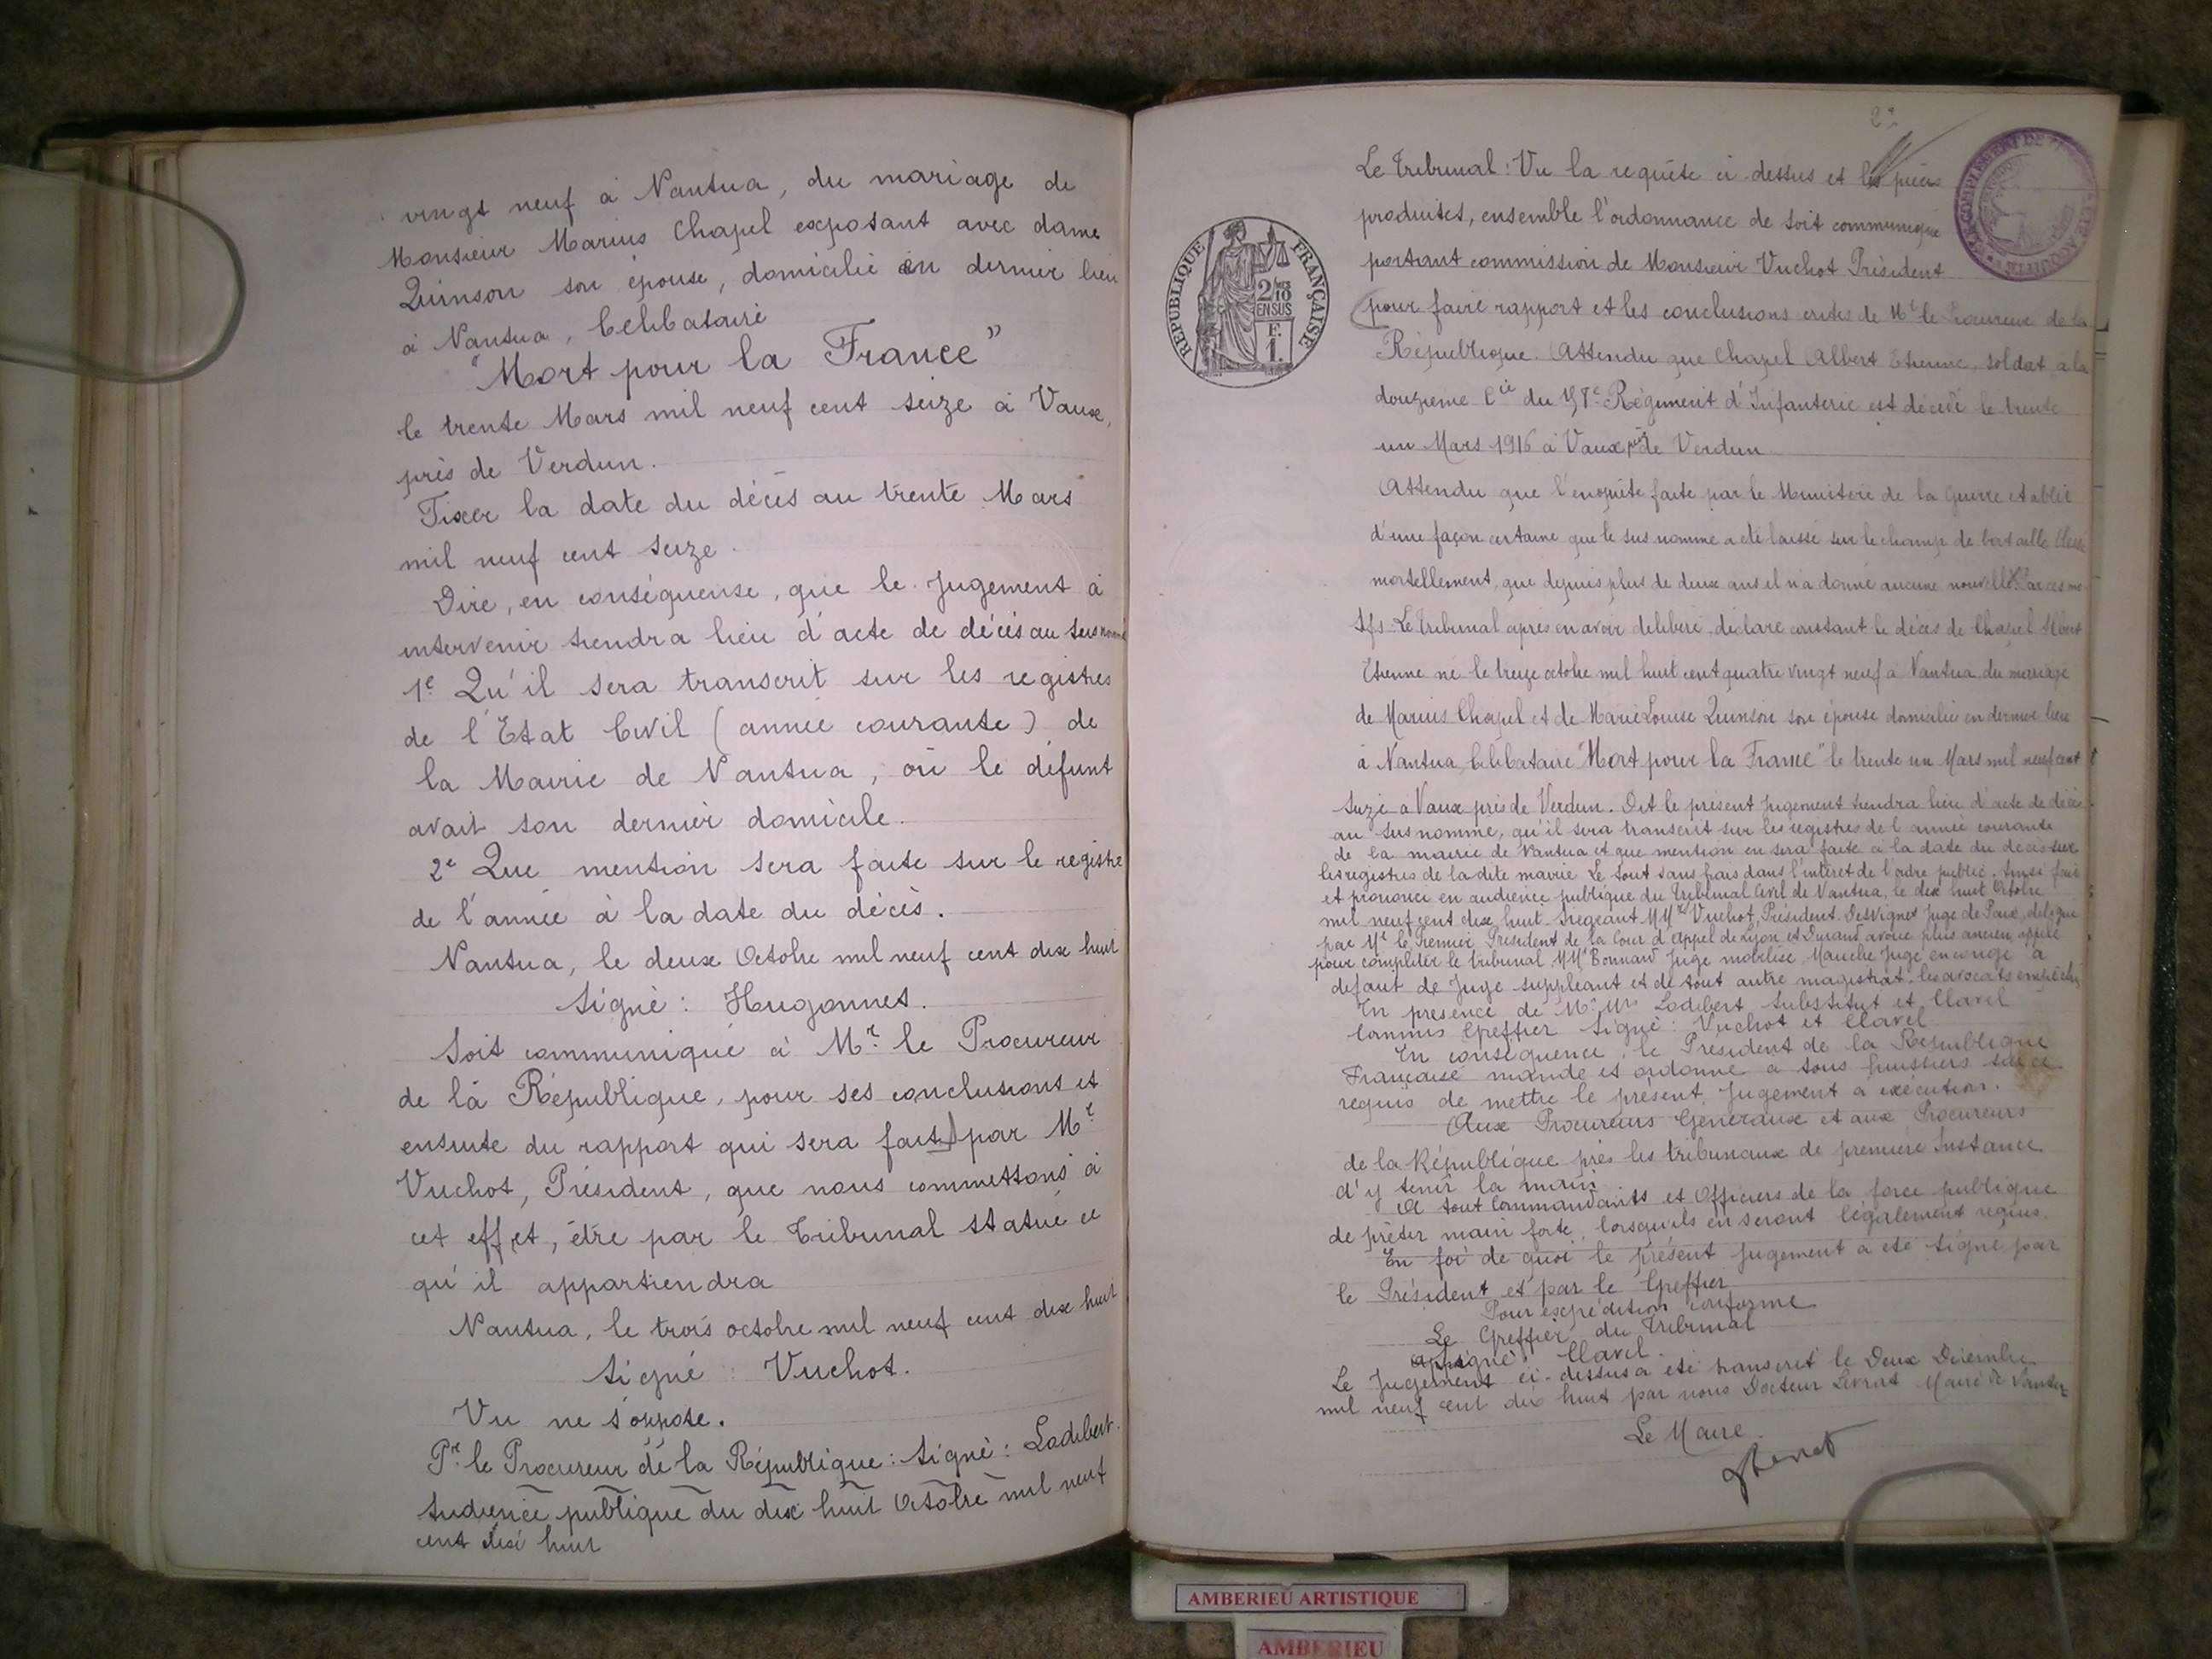 vingt neuf à Nantua, du mariage de
Monsieur Marius Chapel exposant avec dame
Quinson son épouse, domicilié en dernier lieu
à Nantua, Célibataire
"Mort pour la France"
le trente Mars mil neuf cent seize à Vaux,
près de Verdun.
Fixer la date du décès au trente Mars
mil neuf cent seize.
Dire, en conséquense, que le Jugement à
intervenir tiendra lieu d'acte de décès au sus nommé
1e Qu'il sera transcrit sur les registres
de l'Etat Civil (année courante) de
la Mairie de Nantua, où le défunt
avait son dernier domicile.
2e Que mention sera faite sur le registre
de l'année à la date du décès.
Nantua, le deux Octobre mil neuf cent dix huit
Signé: Hugonnet.
Soit communiqué à Mr. le Procureur
de la République, pour ses conclusions et
ensuite du rapport qui sera fait par Mr.
Vuchot, Président, que nous commettons à
cet effet, être par le Tribunal statué ce
qu'il appartiendra
Nantua, le trois octobre mil neuf cent dix huit
Signé: Vuchot.
Vu ne s'oppose.
Pr. le Procureur de la République: Signé: Ladibert.
Audience publique du dix huit Octobre mil neuf
cent dix huit
2e
Le Tribunal: Vu la requête ci-dessus et les pièces
produites, ensemble l'ordonnance de soit communiqué
portant commission de Monsieur Vuchot Président
pour faire rapport et les conclusions écrites de Mr. le Procureur de la
République. Attendu que Chapel Albert Etienne, soldat à la
douzième Cie du Régiment d'Infanterie est décédé le trente
un Mars 1916 à Vaux près de Verdun
Attendu que l'enquête faite par le Ministère de la Guerre établit
d'une façon certaine que le sus nommé a été laissé sur le champ de bataille blessé
mortellement, que depuis plus de deux ans il n'a donné aucune nouvelle. Par ces mo
tifs. Le Tribunal après en avoir délibéré, déclare constant le décès de Chapel Albert
Etienne né le treize octobre mil huit cent quatre vingt neuf à Nantua, du mariage
de Marius Chapel et de Marie Louise Quinson son épouse domicilié en dernier lieu
à Nantua, Célibataire "Mort pour la France" le trente un Mars mil neuf cent
seize à Vaux près de Verdun. Dit le présent Jugement tiendra lieu d'acte de décès
au sus nommé, qu'il sera transcrit sur les registres de l'année courante
de la mairie de Nantua et que mention en sera faite à la date du décès sur
les registres de la dite mairie. Le tout sans frais dans l'intérêt de l'ordre public. Ainsi fait
et prononcé en audience publique du Tribunal Civil de Nantua, le dix huit Octobre
mil neuf cent dix huit. Siégeant MMrs Vuchot, Président. Desvignes Juge de Paix, délégué
par Mr le Premier Président de la Cour d'Appel de Lyon et Durand avoué plus ancien appelé
pour compléter le tribunal, MMrs Bonnard Juge mobilisé, Mauche Juge en congé à
défaut de Juge suppléant et de tout autre magistrat, les avocats empêchés
En présence de Ladibert Substitut et Clavel
Commis Greffier Signé: Vuchot et Clavel
En conséquence, le Président de la République
Française mande et ordonne à tous huissiers sur ce
requis de mettre le présent Jugement à exécution.
Aux Procureurs Généraux et aux Procureurs
de la République près les tribunaux de première Instance
d'y tenir la main
A tout Commandants et Officiers de la force publique
de prêter main forte, lorsqu'ils en seront légalement requis.
En foi de quoi le présent Jugement a été signé par
le Président et par le Greffier
Pour expédition conforme
Le Greffier du Tribunal
signé: Clavel.
Le Jugement ci-dessus a été transcrit le Deux Décembre
mil neuf cent dix huit par nous Docteur Levrat Maire de Nantua
Le Maire.
REPUBLIQUE FRANÇAISE
2/10
EN SUS
F.
1.
AMBERIEU ARTISTIQUE
AMBERIEU